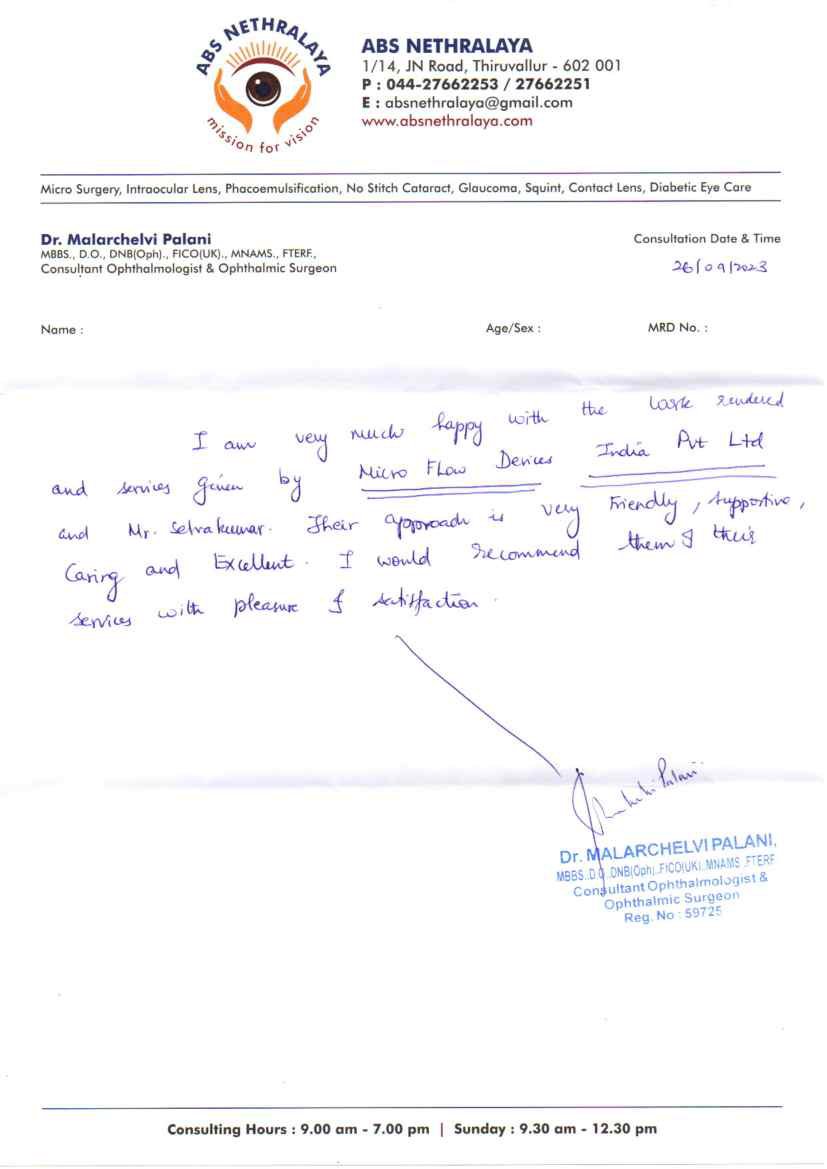 ABS NETHRALAYA
mission for vision
ABS NETHRALAYA
1/14, JN Road, Thiruvallur - 602 001
P : 044-27662253 / 27662251
E : absnethralaya@gmail.com
www.absnethralaya.com
Micro Surgery, Intraocular Lens, Phacoemulsification, No Stitch Cataract, Glaucoma, Squint, Contact Lens, Diabetic Eye Care
Dr. Malarchelvi Palani
MBBS., D.O., DNB(Oph)., FICO(UK)., MNAMS., FTERF.,
Consultant Ophthalmologist & Ophthalmic Surgeon
Consultation Date & Time
26/09/2023
Name :
Age/Sex :
MRD No. :
I am very much happy with the work rendered
and services given by Micro Flow Devices India Pvt Ltd
and Mr. Selvakumar. Their approach is very Friendly, supportive,
Caring and Excellent. I would recommend them & their
services with pleasure & satisfaction.
Palani
Dr. MALARCHELVI PALANI,
MBBS.,D.O.,DNB(Oph).,FICO(UK).,MNAMS.,FTERF
Consultant Ophthalmologist &
Ophthalmic Surgeon
Reg. No : 59725
Consulting Hours : 9.00 am - 7.00 pm | Sunday : 9.30 am - 12.30 pm